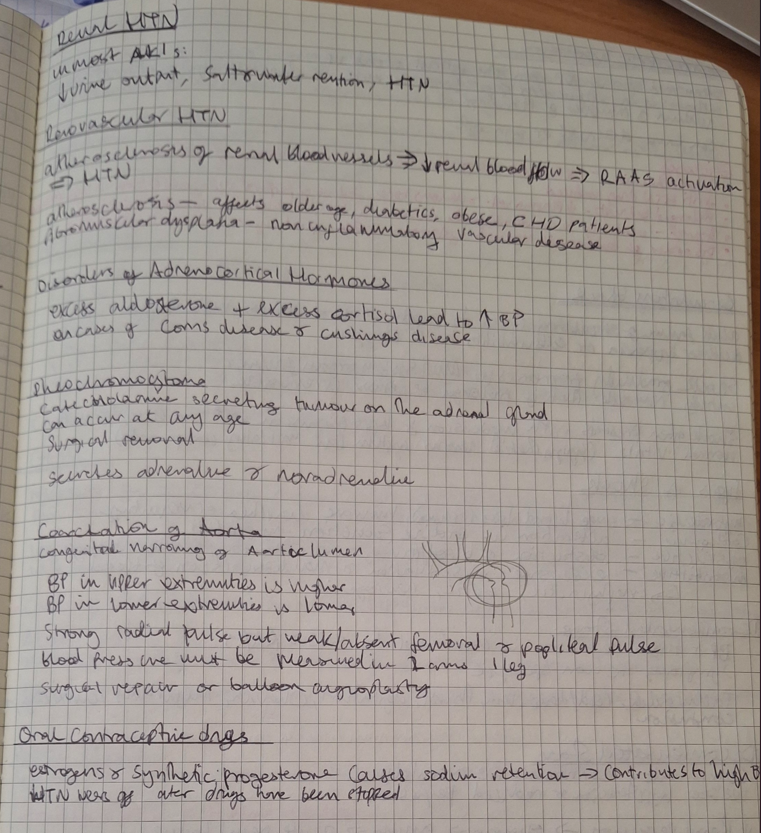 Renal HTN
in most AKIs:
↓urine output, Salt & water rention, HTN
Renovascular HTN
atherosclerosis of renal blood vessels ⇒ ↓renal blood flow ⇒ RAAS activation
⇒ HTN
atherosclrosis – affects older age, diabetics, obese, CHD patients
fibromuscular dysplasia – non inflammatory vascular desease
Disorders of Adrenocortical Hormones
excess aldosterone + excess cortisol lead to ↑ BP
on cases of Conns disease & cushings disease
Pheochromocytoma
Catecholamine secreting tumour on the adrenal gland
can occur at any age
Surgical removal
secretes adrenaline & noradrenaline
Coarctation of Aorta
congenital narrowing of Aortic lumen
BP in upper extremities is higher
BP in lower extremities is lower
Strong radial pulse but weak/absent femoral & popliteal pulse
blood pressure must be measured in 2 arms 1 leg
surgical repair or balloon angioplasty
Oral contraceptive drugs
estrogens & synthetic progesterone causes sodium retention → contributes to high B
HTN after drugs have been stopped